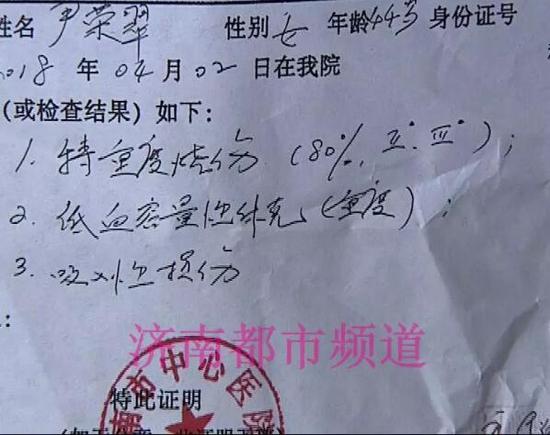 姓名 尹荣翠 性别 女 年龄44岁 身份证号
2018 年 04 月 02 日在我院
(或检查结果)如下:
1. 特重度烧伤 (80%, Ⅱ°.Ⅲ°);
2. 低血容量性休克(重度);
3. 吸入性损伤
济南都市频道
南市中心医院
特此证明